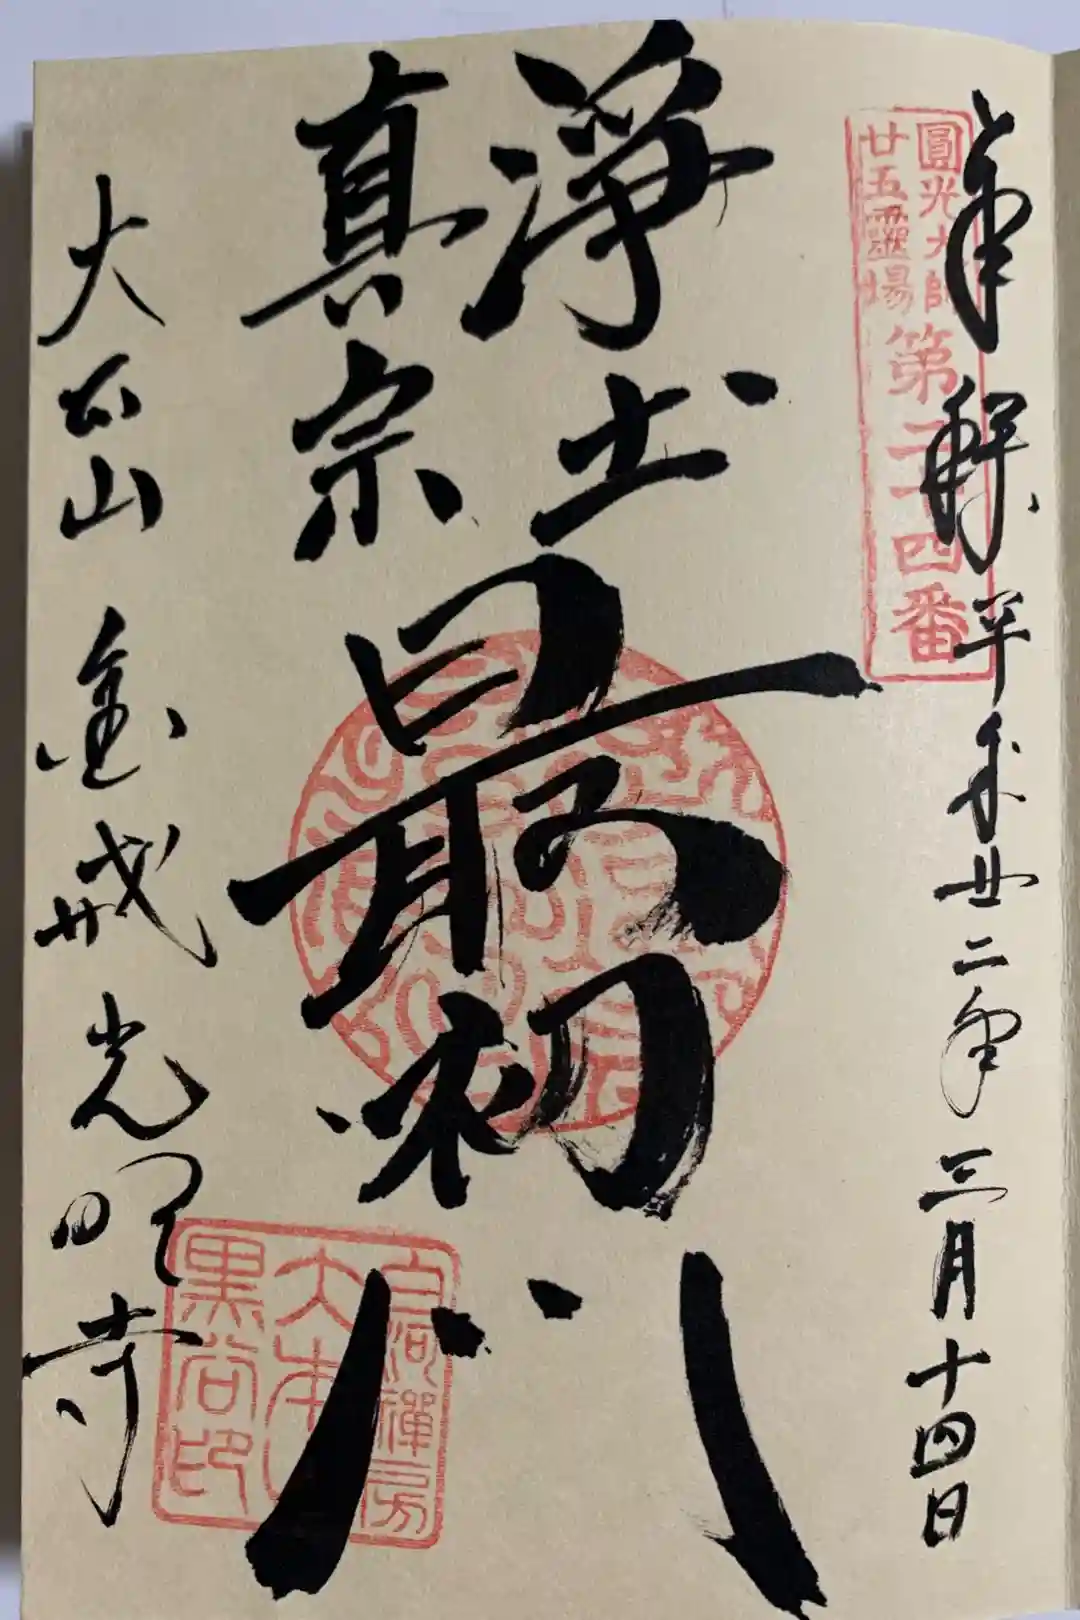 奉拜 平成廿二年三月十四日
圓光大師
廿五靈場
第二十四番
淨土
真宗
最初門
大本山 金戒光明寺
白河禪房
大本山
黒谷印